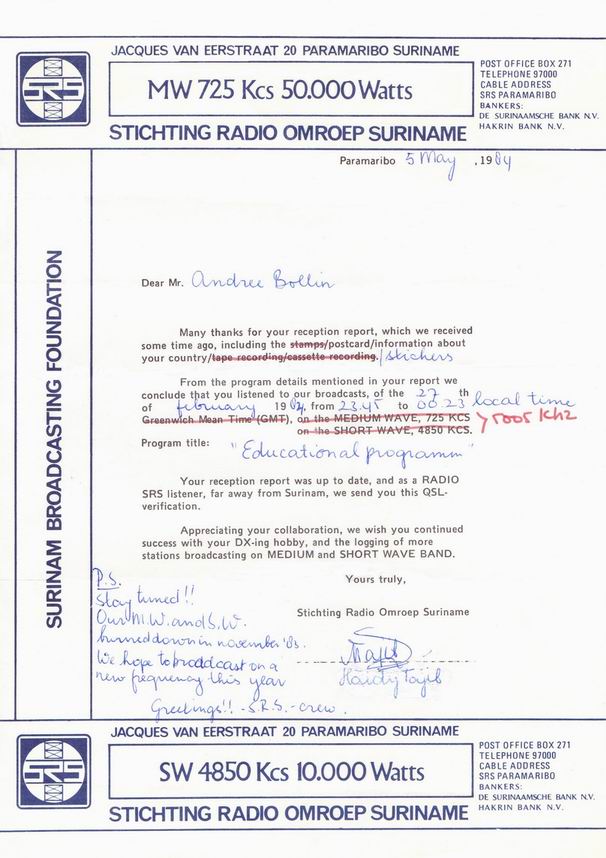 JACQUES VAN EERSTRAAT 20 PARAMARIBO SURINAME
SRS
MW 725 Kcs 50.000 Watts
STICHTING RADIO OMROEP SURINAME
POST OFFICE BOX 271
TELEPHONE 97000
CABLE ADDRESS
SRS PARAMARIBO
BANKERS:
DE SURINAAMSCHE BANK N.V.
HAKRIN BANK N.V.
SURINAM BROADCASTING FOUNDATION
Paramaribo 5 May , 1984
Dear Mr. Andree Bollin
Many thanks for your reception report, which we received
some time ago, including the stamps/postcard/information about
your country/tape recording/cassette recording./stickers
From the program details mentioned in your report we
conclude that you listened to our broadcasts, of the 27 th
of february 1984, from 23.45 to 00.23 local time
Greenwich Mean Time (GMT), on the MEDIUM WAVE, 725 KCS
on the SHORT WAVE, 4850 KCS.
5005 Khz
Program title: "Educational programm"
Your reception report was up to date, and as a RADIO
SRS listener, far away from Surinam, we send you this QSL-
verification.
Appreciating your collaboration, we wish you continued
success with your DX-ing hobby, and the logging of more
stations broadcasting on MEDIUM and SHORT WAVE BAND.
Yours truly,
Stichting Radio Omroep Suriname
Haidy Tajib
P.S.
Stay tuned!!
Our M.W. and S.W.
burned down in november '83.
We hope to broadcast on a
new frequency this year
Greetings!! - S.R.S. - crew.
JACQUES VAN EERSTRAAT 20 PARAMARIBO SURINAME
SRS
SW 4850 Kcs 10.000 Watts
STICHTING RADIO OMROEP SURINAME
POST OFFICE BOX 271
TELEPHONE 97000
CABLE ADDRESS
SRS PARAMARIBO
BANKERS:
DE SURINAAMSCHE BANK N.V.
HAKRIN BANK N.V.